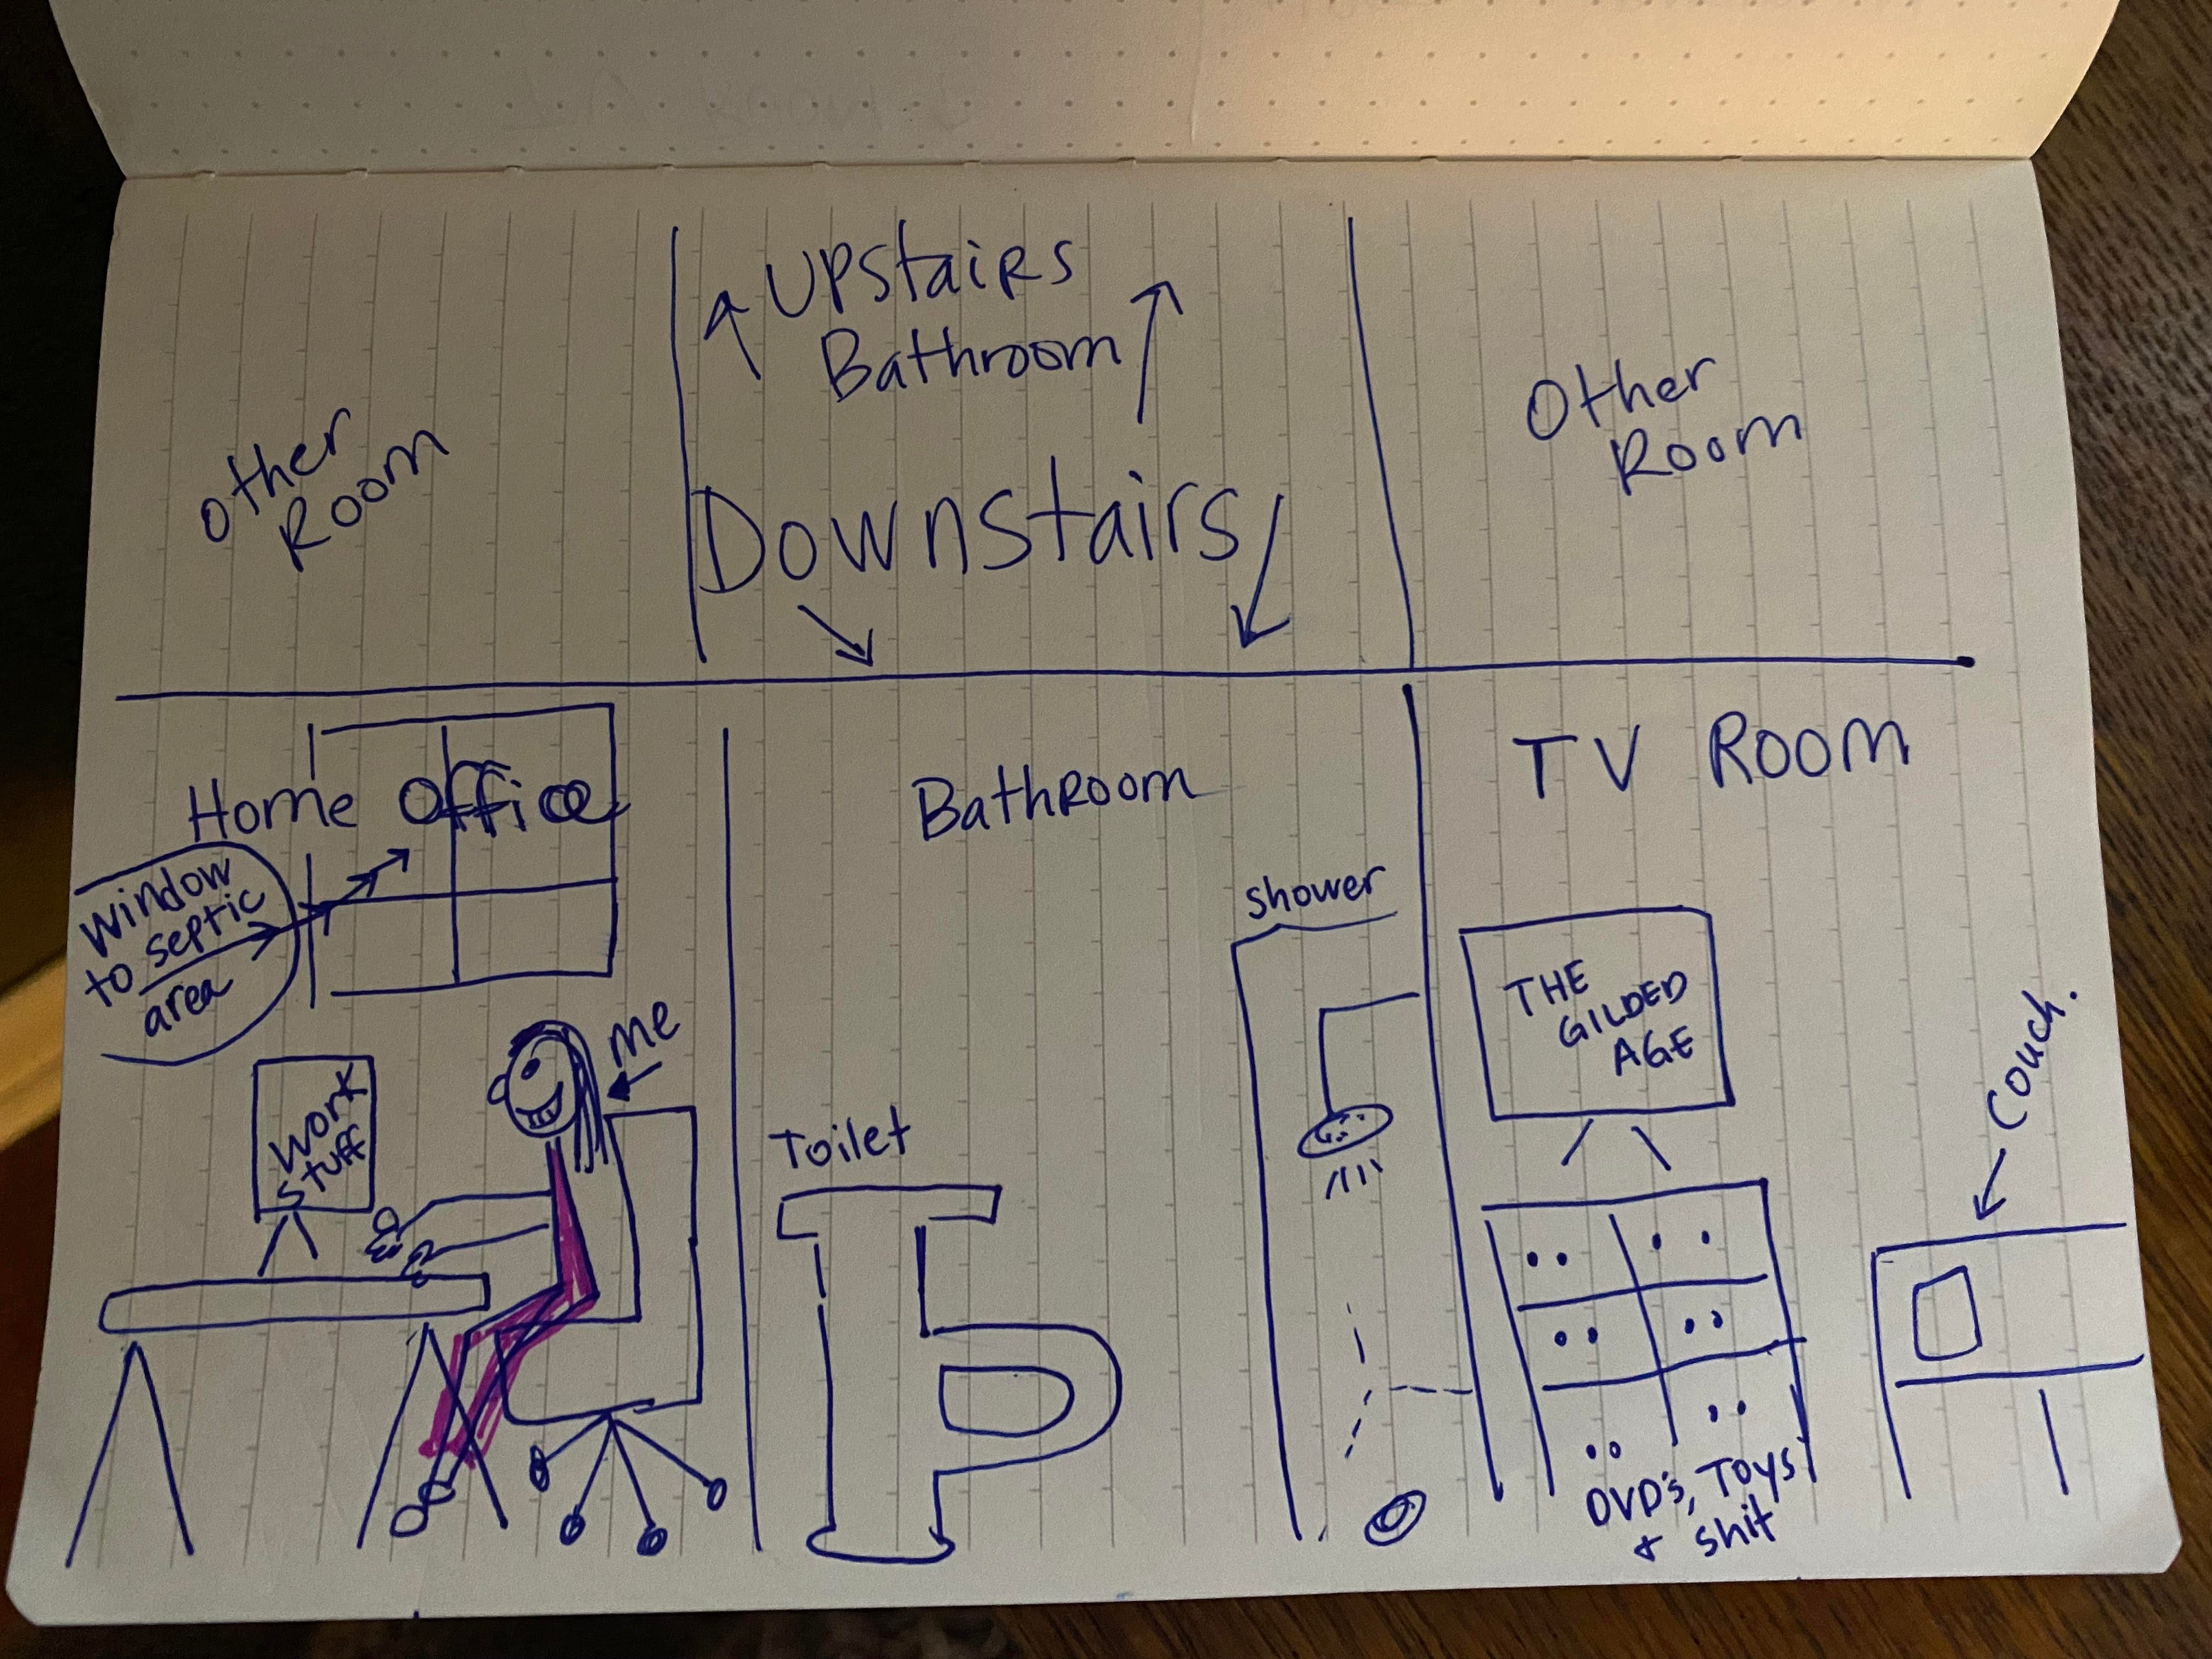 Upstairs
Bathroom
Downstairs
Other
Room
Other
Room
Home Office
Window
to septic
area
me
Work
Stuff
BathRoom
Toilet
shower
TV Room
THE
GILDED
AGE
Couch.
DVD's, Toys
+ shit